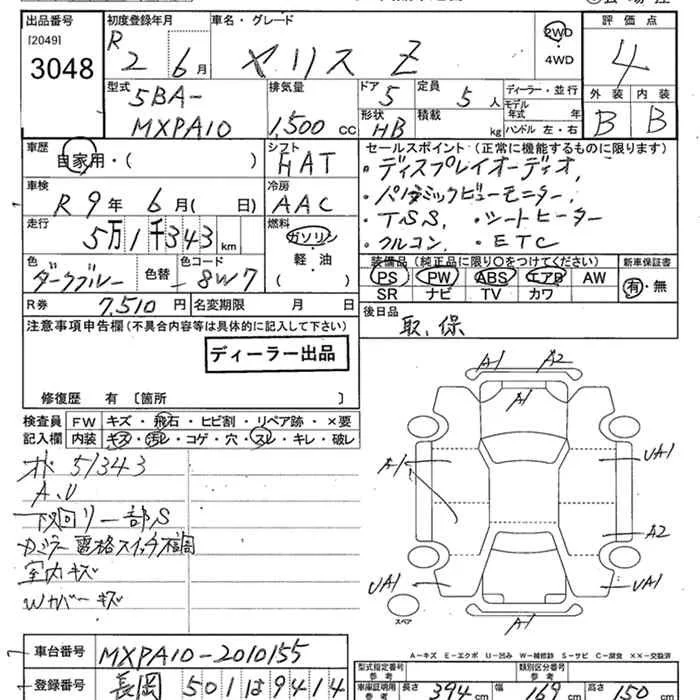 出品番号 初度登録年月 車名・グレード 評価点
[2049]
3048 R2 6月 ヤリス Z 2WD・4WD 4
型式 排気量 ドア 定員 ディーラー・並行 外装 内装
5BA-MXPA10 1,500cc 5 5人 モデル年式 年 B B
形状 積載
HB kg ハンドル 左・右
車歴 シフト セールスポイント(正常に機能するものに限ります)
自家用・( ) FAT ・ディスプレイオーディオ,
車検 冷房 ・パノラミックビューモニター,
R9年 6月( 日) AAC ・TSS, ・シートヒーター
走行 燃料 ・クルコン, ・ETC
5万1千343km ガソリン
軽・油
色 色替 色コード 装備品(純正品に限り○をつけてください) 新車保証書
ダークブルー 8W7 PS PW ABS エアB AW 有・無
SR ナビ TV カワ
R券 7,510円 名変期限 月 日 後日品
注意事項申告欄(不具合内容等は具体的に記入して下さい) 取,保
ディーラー出品
修復歴 有 〔箇所 〕
検査員 FW キズ・飛石・ヒビ割・リペア跡・×要
記入欄 内装 キズ・汚れ・コゲ・穴・スレ・キレ・破レ
51343
A,U
下回り一部S
室内キズ
Wカバーキズ
A1 A2
A1
A1 UA1
A2
UA1 UA1
A1
スペア
A-キズ E-エクボ U-凹み W-補修跡 S-サビ C-腐食 XX-交換済
車台番号 MXPA10-2010155
型式指定番号 参考 類別区分番号 参考
登録番号 長岡 501は9414
車庫証明用 参考 長さ 394cm 幅 169cm 高さ 150cm